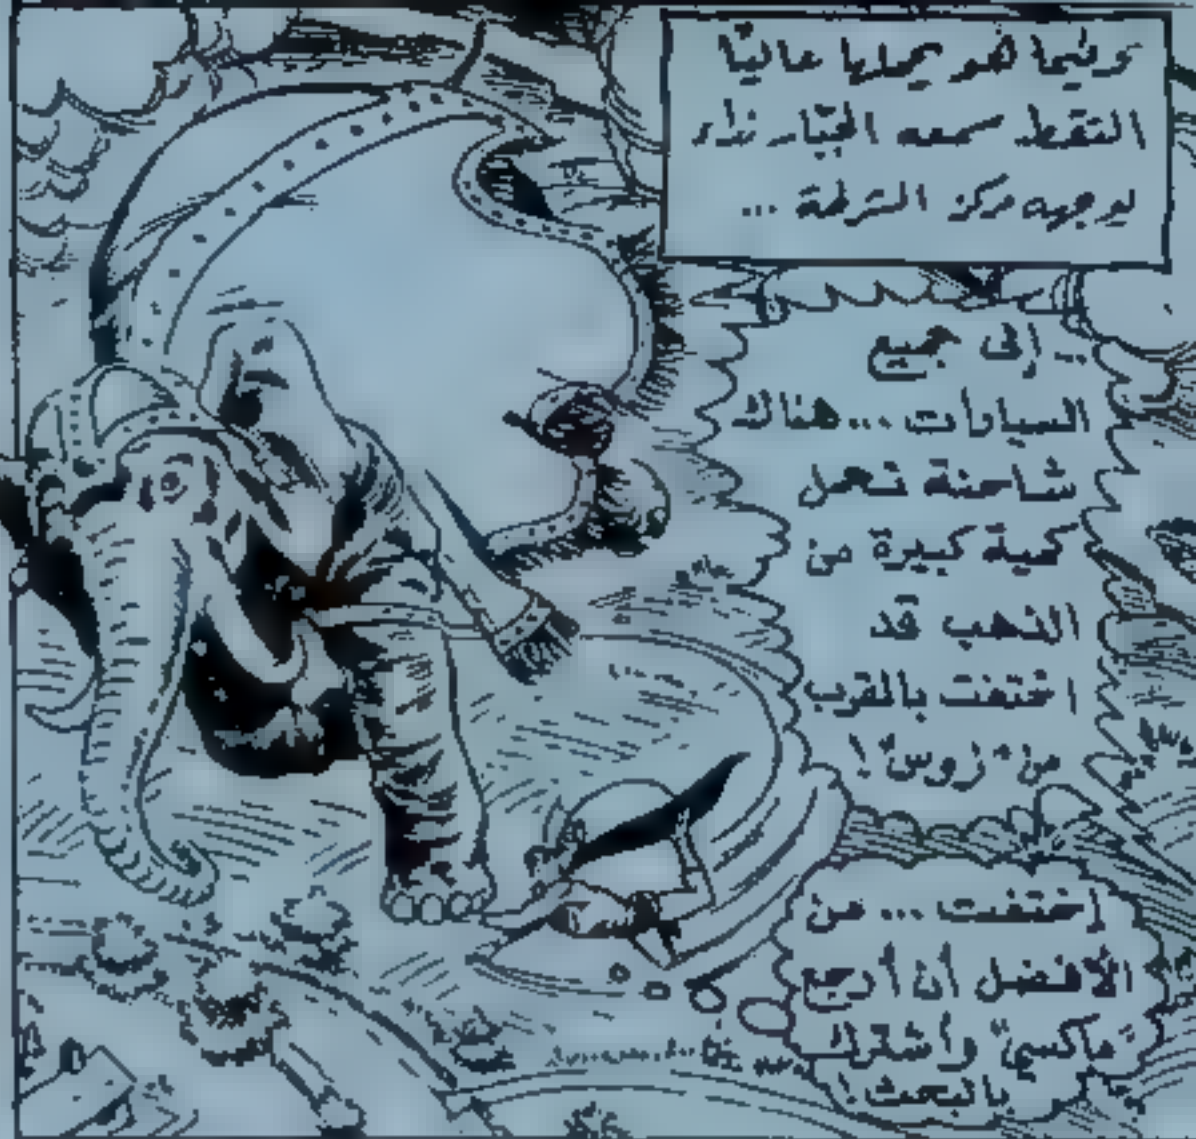 وفيما هو يحملها عاليًا
التقط سمعه الجبّار نداء
يوجهه مركز الشرطة ...
... إلى جميع
السيارات ... هناك
شاحنة تحمل
كمية كبيرة من
الذهب قد
اختفت بالقرب
من "زوس"!
إختفت ... من
الأفضل أن أرجع
"ماكسي" وأشترك
بالبحث!